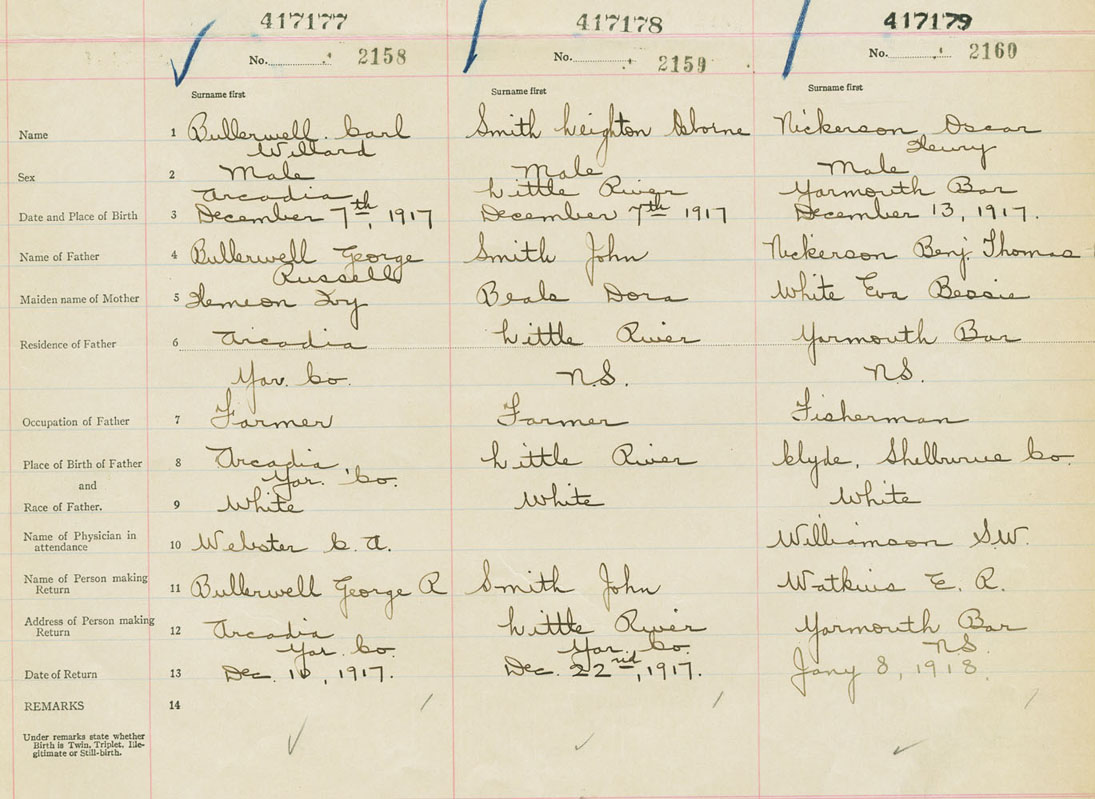 417177 417178 417179
No. 2158 No. 2159 No. 2160
Surname first Surname first Surname first
Name 1 Bullerwell. Carl Smith Leighton Osborne Nickerson Oscar
Willard Henry
Sex 2 Male Male Male
Arcadia Little River Yarmouth Bar
Date and Place of Birth 3 December 7th, 1917 December 7th 1917 December 13, 1917.
Name of Father 4 Bullerwell George Smith John Nickerson Benj. Thomas
Russell
Maiden name of Mother 5 Hemeon Ivy Beals Dora White Eva Bessie
Residence of Father 6 Arcadia Little River Yarmouth Bar
Yar. Co. N.S. N.S.
Occupation of Father 7 Farmer Farmer Fisherman
Place of Birth of Father 8 Arcadia, Little River Clyde, Shelburne Co.
Yar. Co.
and
Race of Father. 9 White White White
Name of Physician in
attendance 10 Webster C. A. Williamson S.W.
Name of Person making
Return 11 Bullerwell George R Smith John Watkins E. R.
Address of Person making
Return 12 Arcadia Little River Yarmouth Bar
Yar. Co. Yar. Co. N.S.
Date of Return 13 Dec. 10, 1917. Dec. 22nd, 1917. Jany 8, 1918.
REMARKS 14
Under remarks state whether
Birth is Twin, Triplet, Ille-
gitimate or Still-birth.